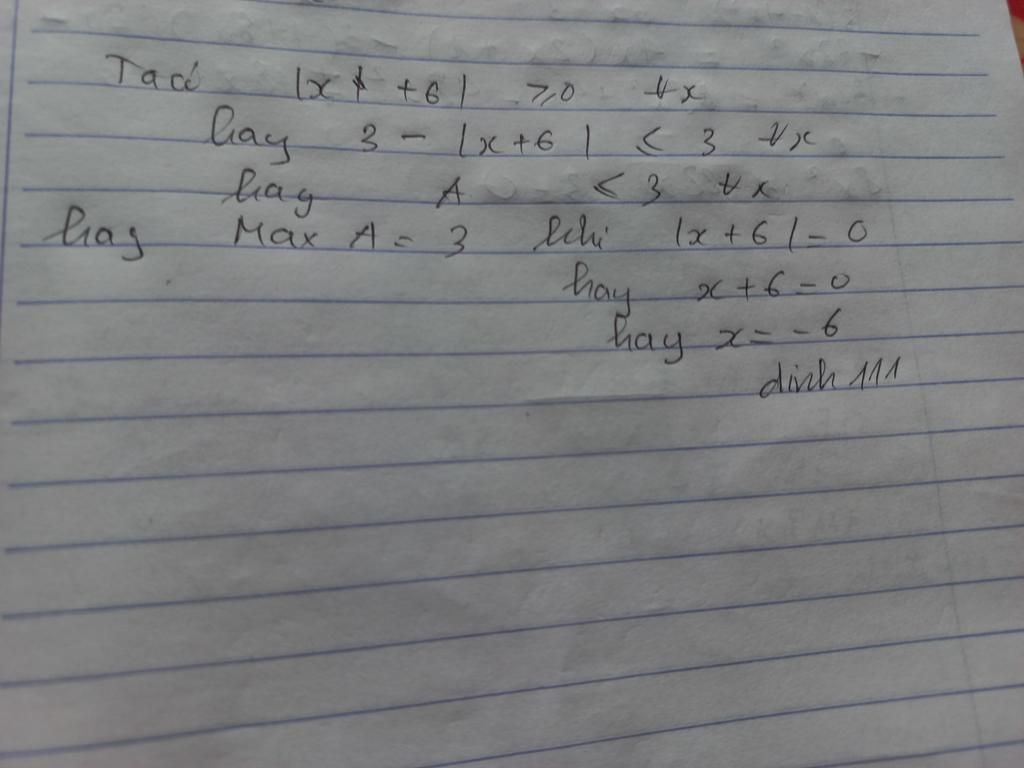 Ta có |x + 6| ⩾ 0 ∀x
hay 3 - |x + 6| ⩽ 3 ∀x
hay A ⩽ 3 ∀x
hay Max A = 3 khi |x + 6| = 0
hay x + 6 = 0
hay x = - 6
dinh 111